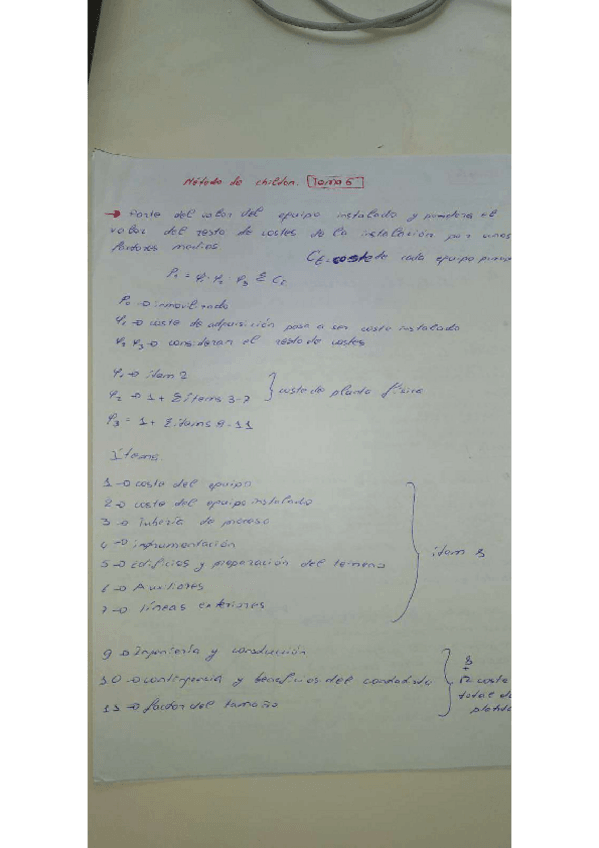 Método de chilton. Tema 5
→ Parte del valor del equipo instalado y pondera el
valor del resto de costes de la instalación por unos
factores medios.
CE → coste de cada equipo
P₁ = φ₁ · φ₂ · φ₃ Σ CE
P₀ → inmovilizado
φ₁ → coste de adquisición pasa a ser coste instalado
φ₂ φ₃ → consideran el resto de costes
φ₁ → item 2
φ₂ → 1 + Σ items 3-7
} coste de planta física
φ₃ = 1 + Σ items 9-11
Items
1 → coste del equipo
2 → coste del equipo instalado
3 → Tubería de proceso
4 → instrumentación
5 → Edificios y preparación del terreno
6 → Auxiliares
7 → líneas exteriores
} item 8
9 → Ingeniería y construcción
10 → contingencia y beneficios del contratista
11 → factor del tamaño
} 8
+
12 coste
total de